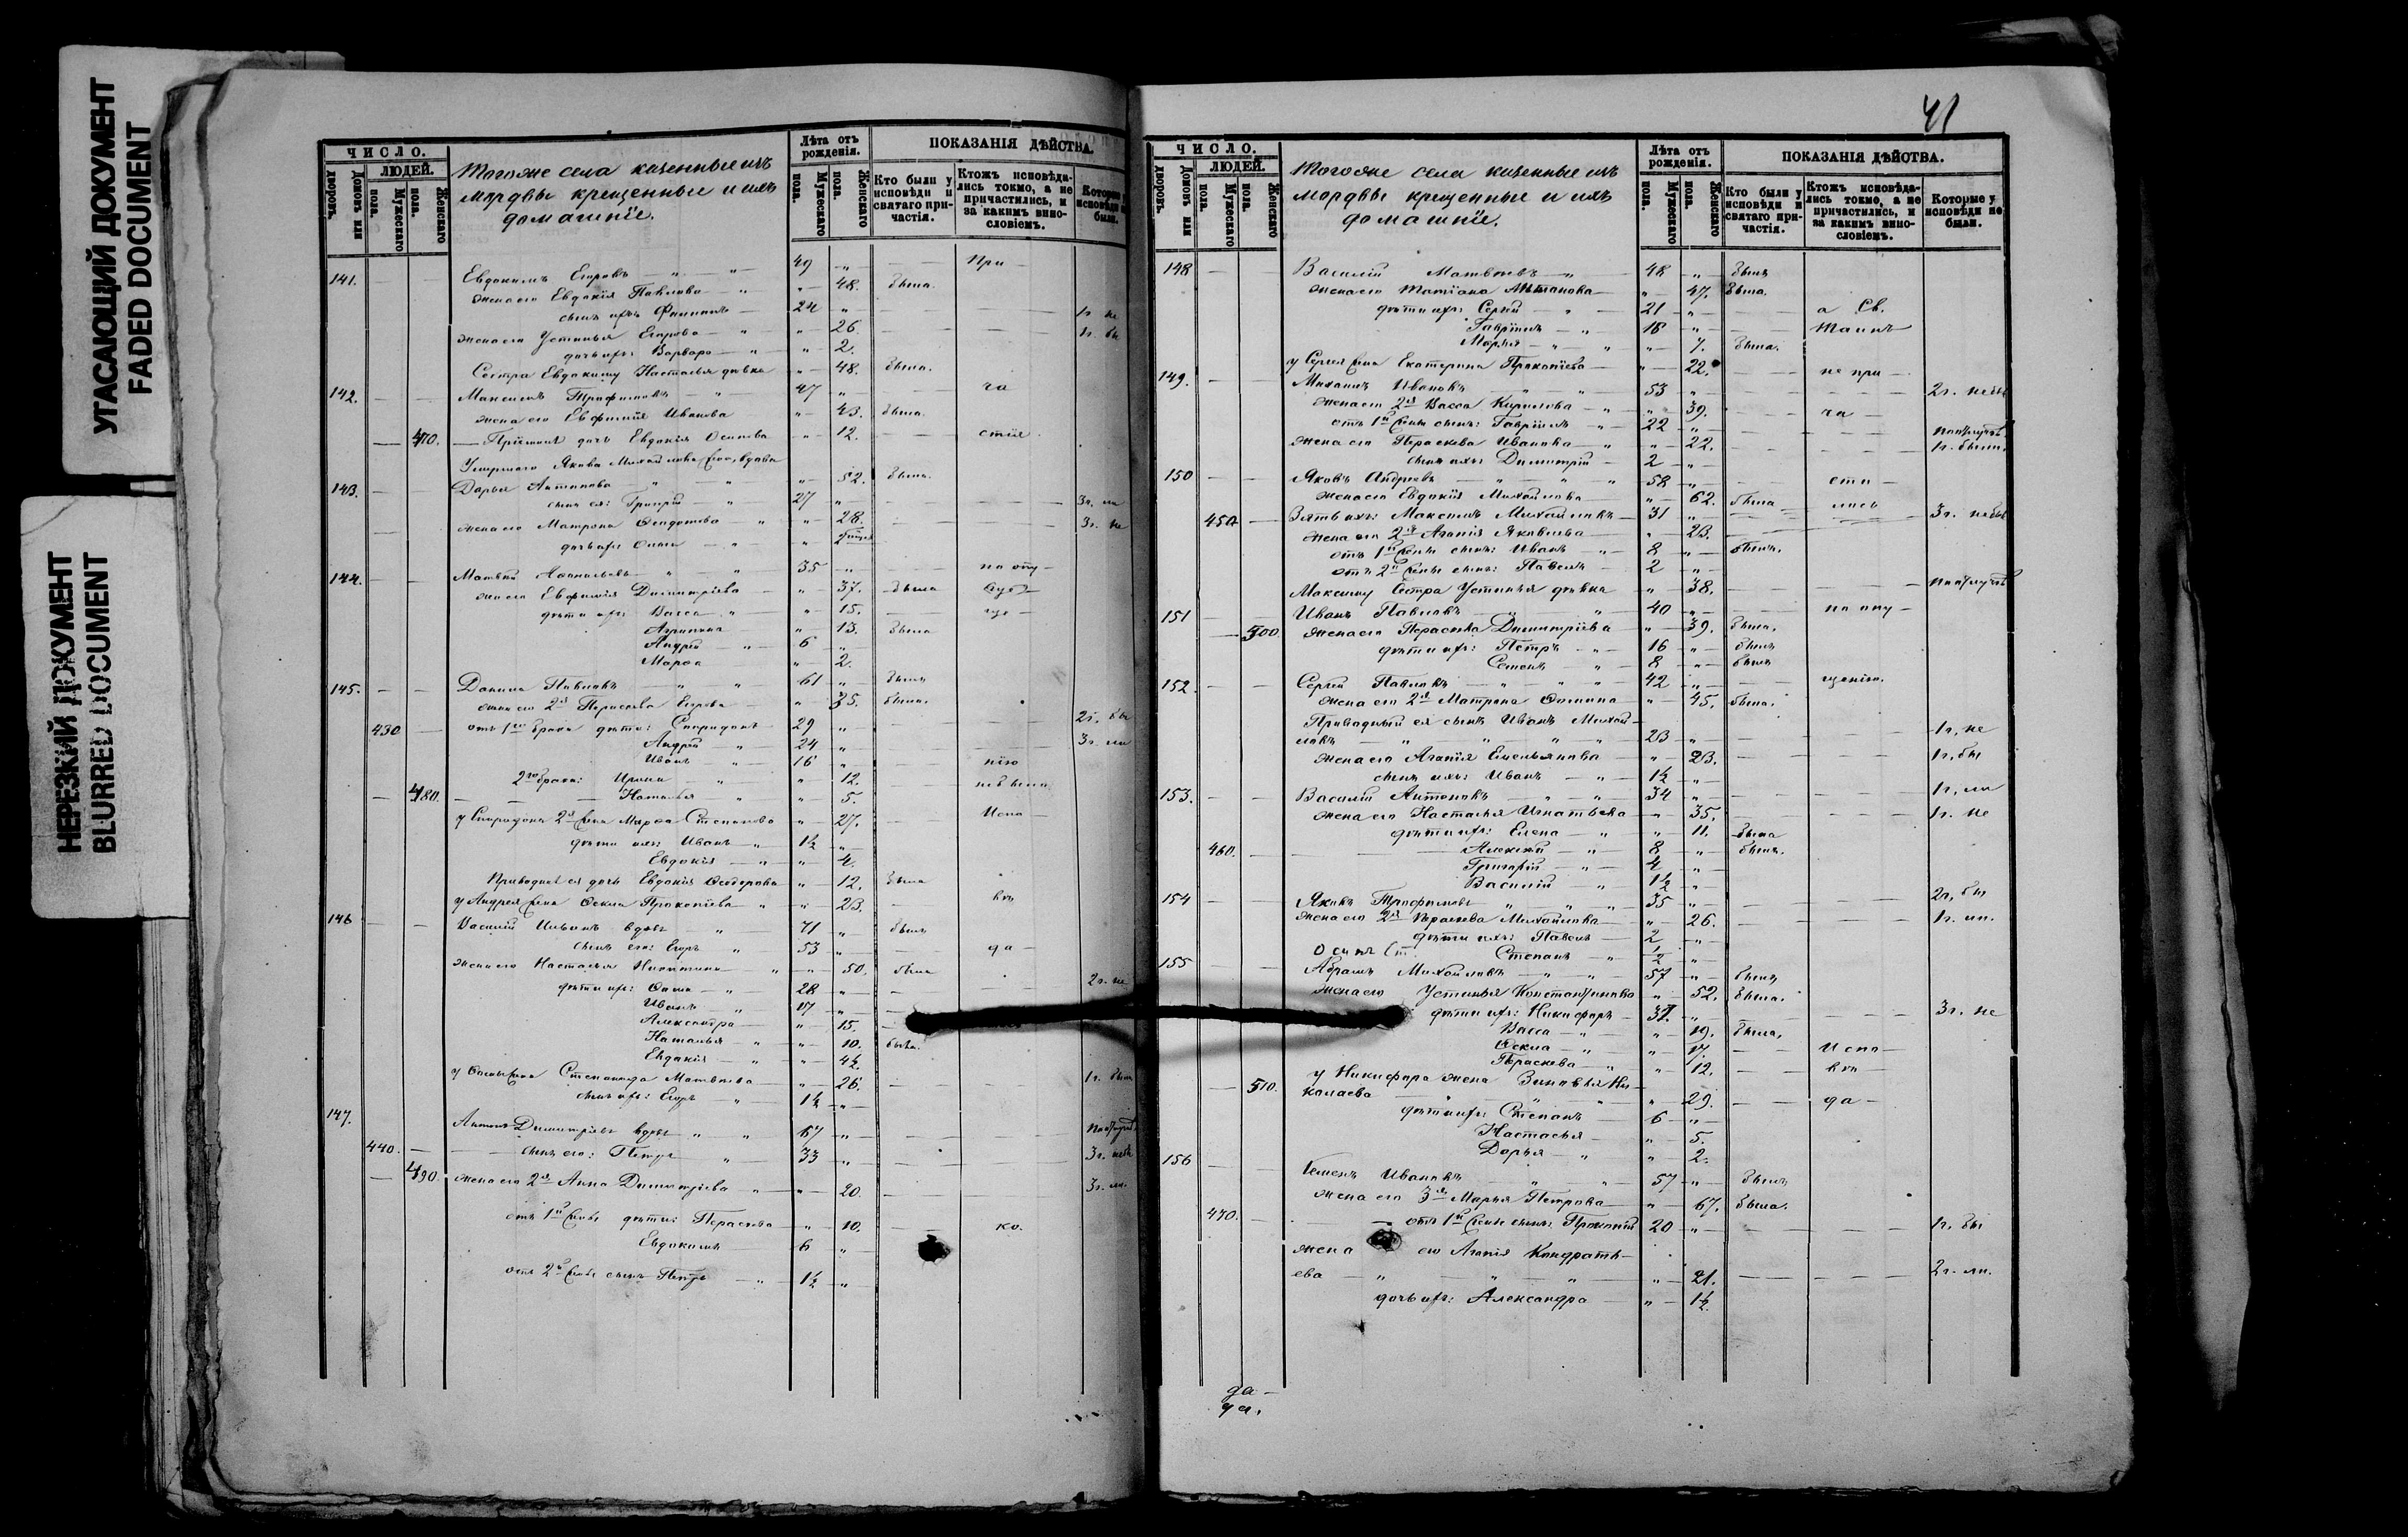 УГАСАЮЩИЙ ДОКУМЕНТ
FADED DOCUMENT
НЕРЕЗКИЙ ДОКУМЕНТ
BLURRED DOCUMENT
ЧИСЛО.
ЛЮДЕЙ.
Домовъ или дворовъ.
Мужескаго пола.
Женскаго пола.
Тогоже села казенные изъ
мордвы крещенные и ихъ
домашніе.
Лѣта отъ рожденія.
Мужескаго пола.
Женскаго пола.
ПОКАЗАНІЯ ДѢЙСТВА.
Кто были у исповѣди и святаго причастія.
Ктожъ исповѣдались токмо, а не причастились, и за какимъ винословіемъ.
141. Евдокимъ Егоровъ 49 При
жена его Евдокія Павлова 48. была.
сынъ ихъ Филиппъ 24 1г. не
жена его Устинья Егорова 26. 1г. бы
дочь ихъ: Варвара 2.
Сестра Евдокиму Настасья дѣвка 48. была.
142. Максимъ Трофимовъ 47 ча
жена его Евфимія Иванова 43. была.
470. Пріемная дочь Евдокія Осипова 12. стія
Умершаго Якова Михайлова жена, вдова
143. Дарья Антонова 52. была.
сынъ ея: Григорій 27 3г. ли
жена его Матрона Ѳедотова 28. 3г. не
дочь ихъ
144. Матвѣй 35 по отлу
жена его Евфимія Димитріева 37. была
дѣти ихъ: Васса 15.
Агрипина 13. была
Андрей 6
Марѳа 2.
145. Данила Павловъ 61 былъ
жена его 2я Параскева Егорова 35. была.
430 отъ 1го брака дѣти: Спиридонъ 29 2г. бы
Андрей 24 3г. ли
Иванъ 16 нію
2го брака: Ирина 12.
480. Наталья 5.
у Спиридона 2я жена Марѳа Степанова 27. Испо
дѣти ихъ: Иванъ 1½
Евдокія 4.
Приводная ея дочь Евдокія Ѳеодорова 12. была
у Андрея жена Ѳекла Прокопіева 23. вѣ
146 Василій вдовъ 71 былъ
сынъ его: Егоръ 53 да
жена его Настасья Никитина 50. была
дѣти ихъ: Ѳома 28 2г. не
Иванъ 17
Александра 15.
Наталья 10. была.
Евдокія 4½
у Ѳомы жена Степанида Матвѣева 26. 1г. были
сынъ ихъ: Егоръ 1½
147. Антонъ Димитріевъ вдовъ 67
440. сынъ его: Петръ 33 3г. небы
490. жена его 2я Анна Димитріева 20. 3г. ли.
отъ 1й жены дѣти: Параскева 10. ко.
Евдокимъ 6
отъ 2й жены сынъ Петръ 1½
41
ЧИСЛО.
ЛЮДЕЙ.
Домовъ или дворовъ.
Мужескаго пола.
Женскаго пола.
Тогоже села казенные изъ
мордвы крещенные и ихъ
домашніе.
Лѣта отъ рожденія.
Мужескаго пола.
Женскаго пола.
ПОКАЗАНІЯ ДѢЙСТВА.
Кто были у исповѣди и святаго причастія.
Ктожъ исповѣдались токмо, а не причастились, и за какимъ винословіемъ.
Которые у исповѣди не были.
148 Василій Матвѣевъ 48 былъ
жена его Татіана 47. была.
дѣти ихъ: Сергѣй 21 а Св.
Гавріилъ 18 Таинъ
Марья 7. была.
у Сергея жена Екатерина Прокопіева 22. не при
149. Михаилъ Ивановъ 53 2г. небы
жена его 2я Васса Кирилова 39. ча
отъ 1й жены сынъ: Гавріилъ 22
жена его Параскева Иванова 22. 1г. были.
сынъ ихъ: Димитрій 2
150 Яковъ Андреевъ 58 сти
жена его Евдокія Михайлова 62. была лись
450 Зять ихъ: Максимъ Михайловъ 31 3г. небы
жена его 2я Агапія Яковлева 23.
отъ 1й жены сынъ: Иванъ 8 былъ.
отъ 2й жены сынъ: Павелъ 2
Максиму Сестра Устинья дѣвка 38.
151 Иванъ Павловъ 40 по опу
500. жена его Параскева Димитріева 39. была.
дѣти ихъ: Петръ 16 былъ
Семенъ 8 былъ
152. Сергѣй Павловъ 42 щенію.
жена его 2я Матрона Ѳомина 45. была.
Приводный ея сынъ Иванъ Михай-
ловъ 23 1г. не
жена его Агапія Емельянова 23. 1г. бы
сынъ ихъ: Иванъ 1½
153. Василій Антоновъ 34 1г. ли
жена его Настасья Игнатьева 35. 1г. не
дѣти ихъ: Елена 11. была
460. Алексѣй 8 былъ.
Григорій 4
Василій 1½
154 Яковъ Трофимовъ 35 2г. бы
жена его 2я Параскева Михайлова 26. 1г. ли.
дѣти ихъ: Павелъ 2
Степанъ ½
155 Абрамъ Михайловъ 57 былъ
жена его Устинья Константинова 52. была.
дѣти ихъ: Никифоръ 31. 3г. не
Васса 19. была.
Ѳекла 17. Испо
Параскева 12. вѣ
510. у Никифора жена Зиновья Ни-
колаева 29. да
дѣти ихъ: Степанъ 6
Настасья 5.
Дарья 2.
156 Семенъ Ивановъ 57 былъ
жена его 3я Марья Петрова 67. была.
470. отъ 1й жены сынъ: Прокопій 20 1г. бы
жена его Агапія Кондрать-
ева 21. 2г. ли.
дочь ихъ: Александра 1½